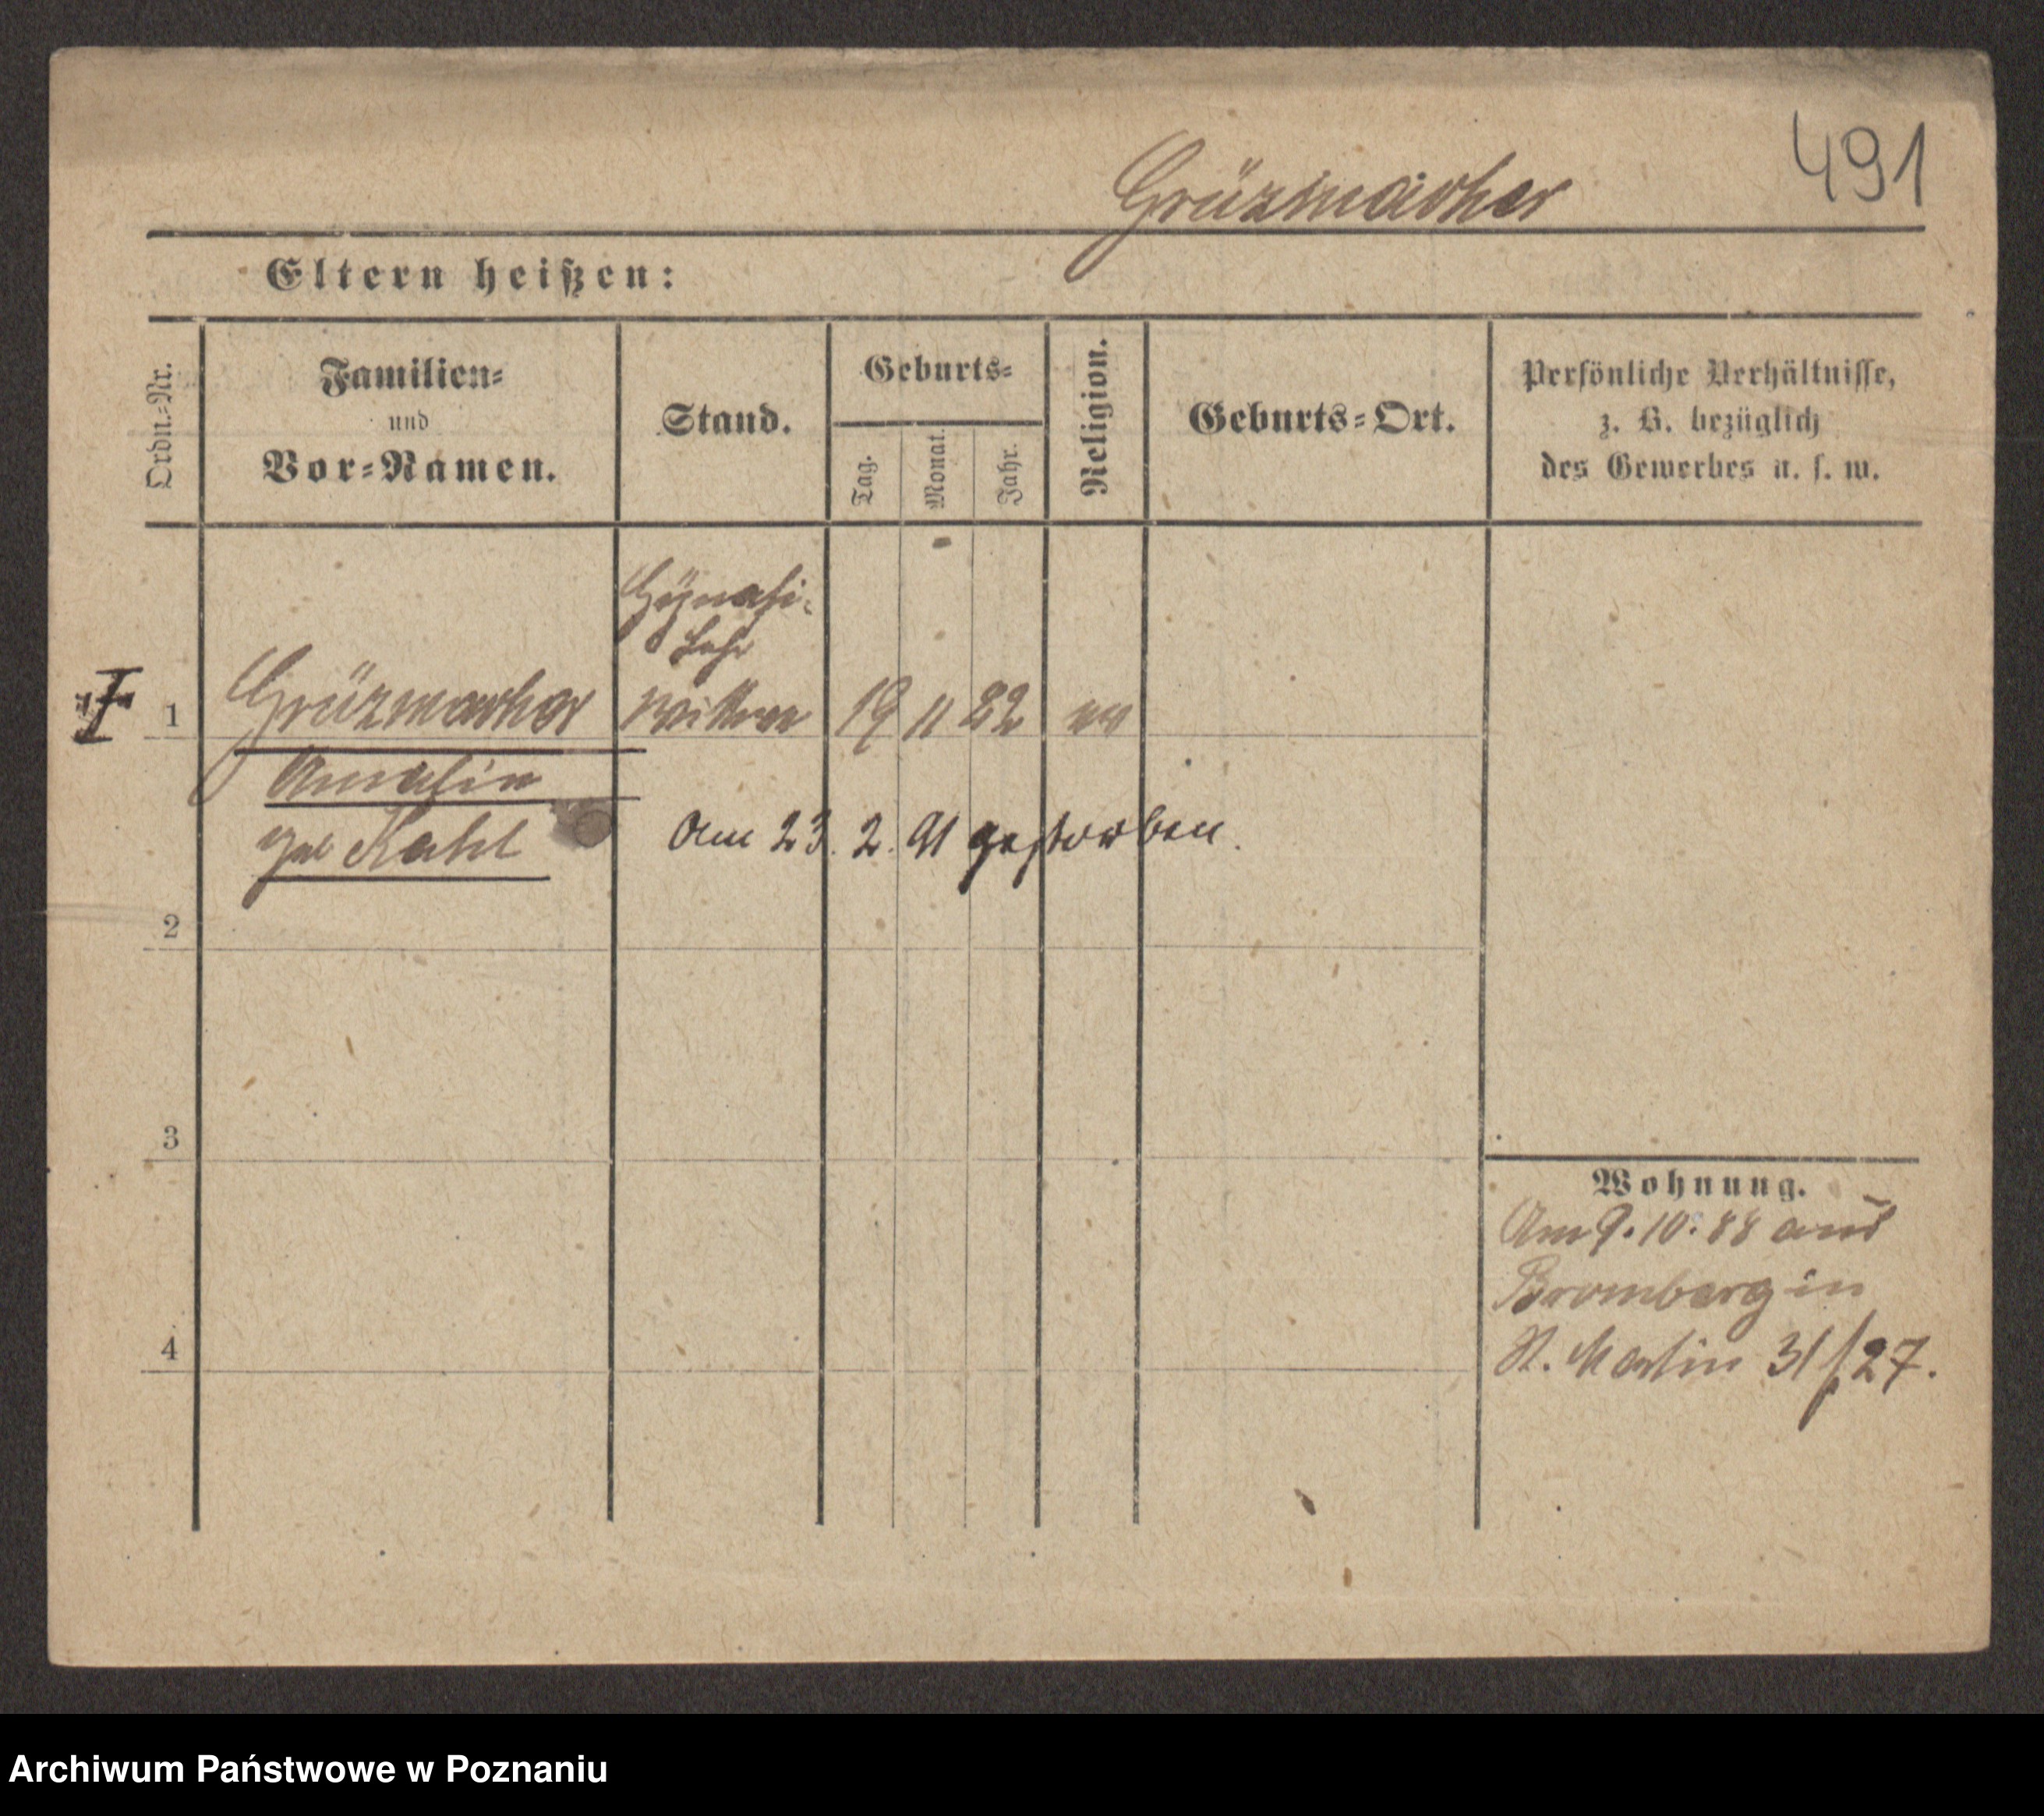 491
Grüzmacher
Eltern heißen:
Ordn.-Nr.
Familien-
und
Vor-Namen.
Stand.
Geburts-
Tag.
Monat.
Jahr.
Religion.
Geburts-Ort.
Persönliche Verhältnisse,
z. B. bezüglich
des Gewerbes u. s. w.
Gÿmnasi-
Lehr
1 Grüzmacher Wittwe 19 11 22 ev
Amalie
geb Kahl
Am 23. 2. 91 gestorben.
2
3
4
Wohnung.
Am 9. 10. 88 aus
Bromberg in
St. Martin 31 / 27.
Archiwum Państwowe w Poznaniu